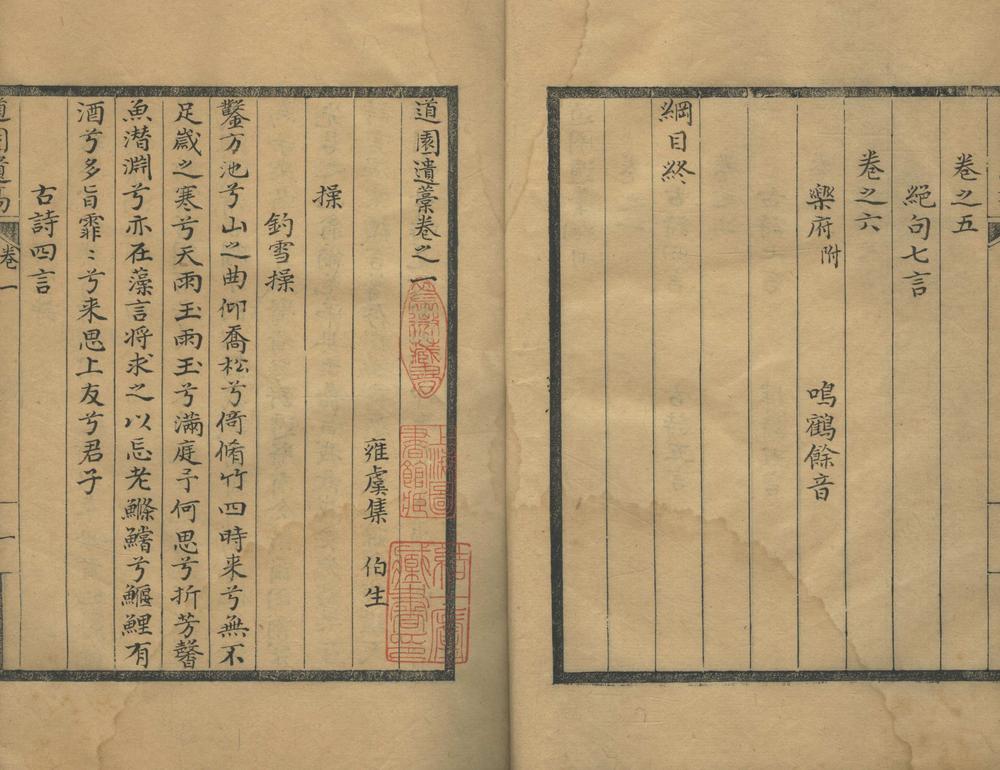 卷之五
絕句七言
卷之六
樂府附　鳴鶴餘音
綱目終
道園遺藁卷之一
雍虞集　伯生
操
釣雪操
鑿方池兮山之曲仰喬松兮倚脩竹四時来兮無不
足歲之寒兮天雨玉雨玉兮滿庭予何思兮折芳馨
魚潜淵兮亦在藻言将求之以忘老鰷鱨兮鰋鯉有
酒兮多旨霏〻兮来思上友兮君子
古詩四言
卷一
一
上海圖書館藏